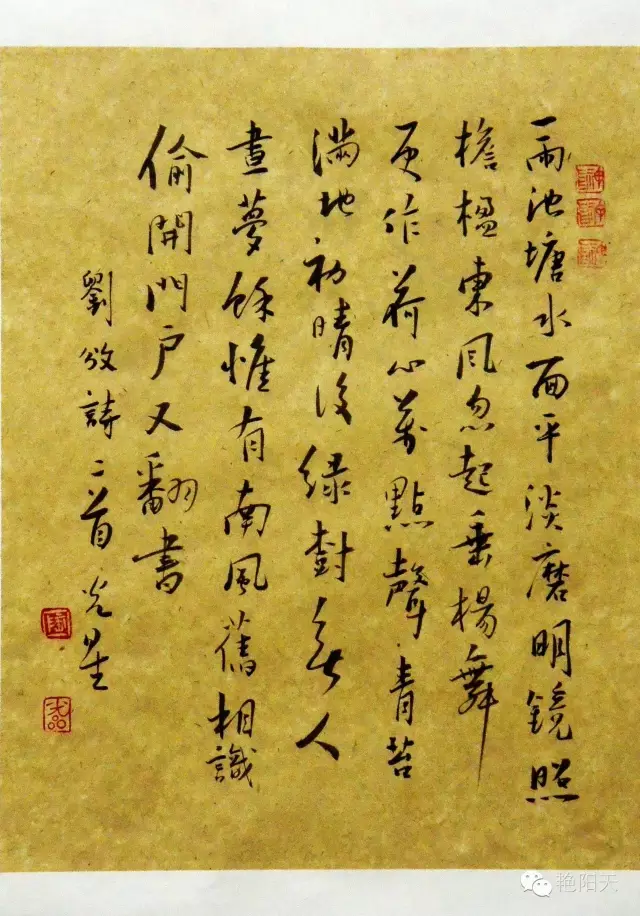 一雨池塘水面平淡磨明鏡照
檐楹東風忽起垂楊舞
更作荷心萬點聲青苔
滿地初晴後綠樹無人
晝夢餘惟有南風舊相識
偷開門戶又翻書
劉攽詩二首光星
艳阳天